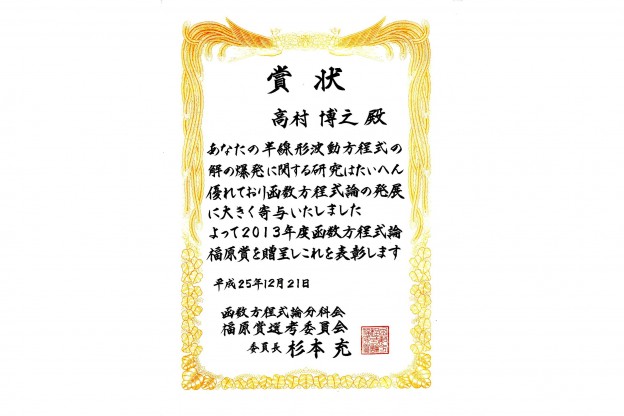 賞状
高村 博之 殿
あなたの半線形波動方程式の
解の爆発に関する研究はたいへん
優れており函数方程式論の発展
に大きく寄与いたしました
よって2013年度函数方程式論
福原賞を贈呈しこれを表彰します
平成25年12月21日
函数方程式論分科会
福原賞選考委員会
委員長 杉本 充